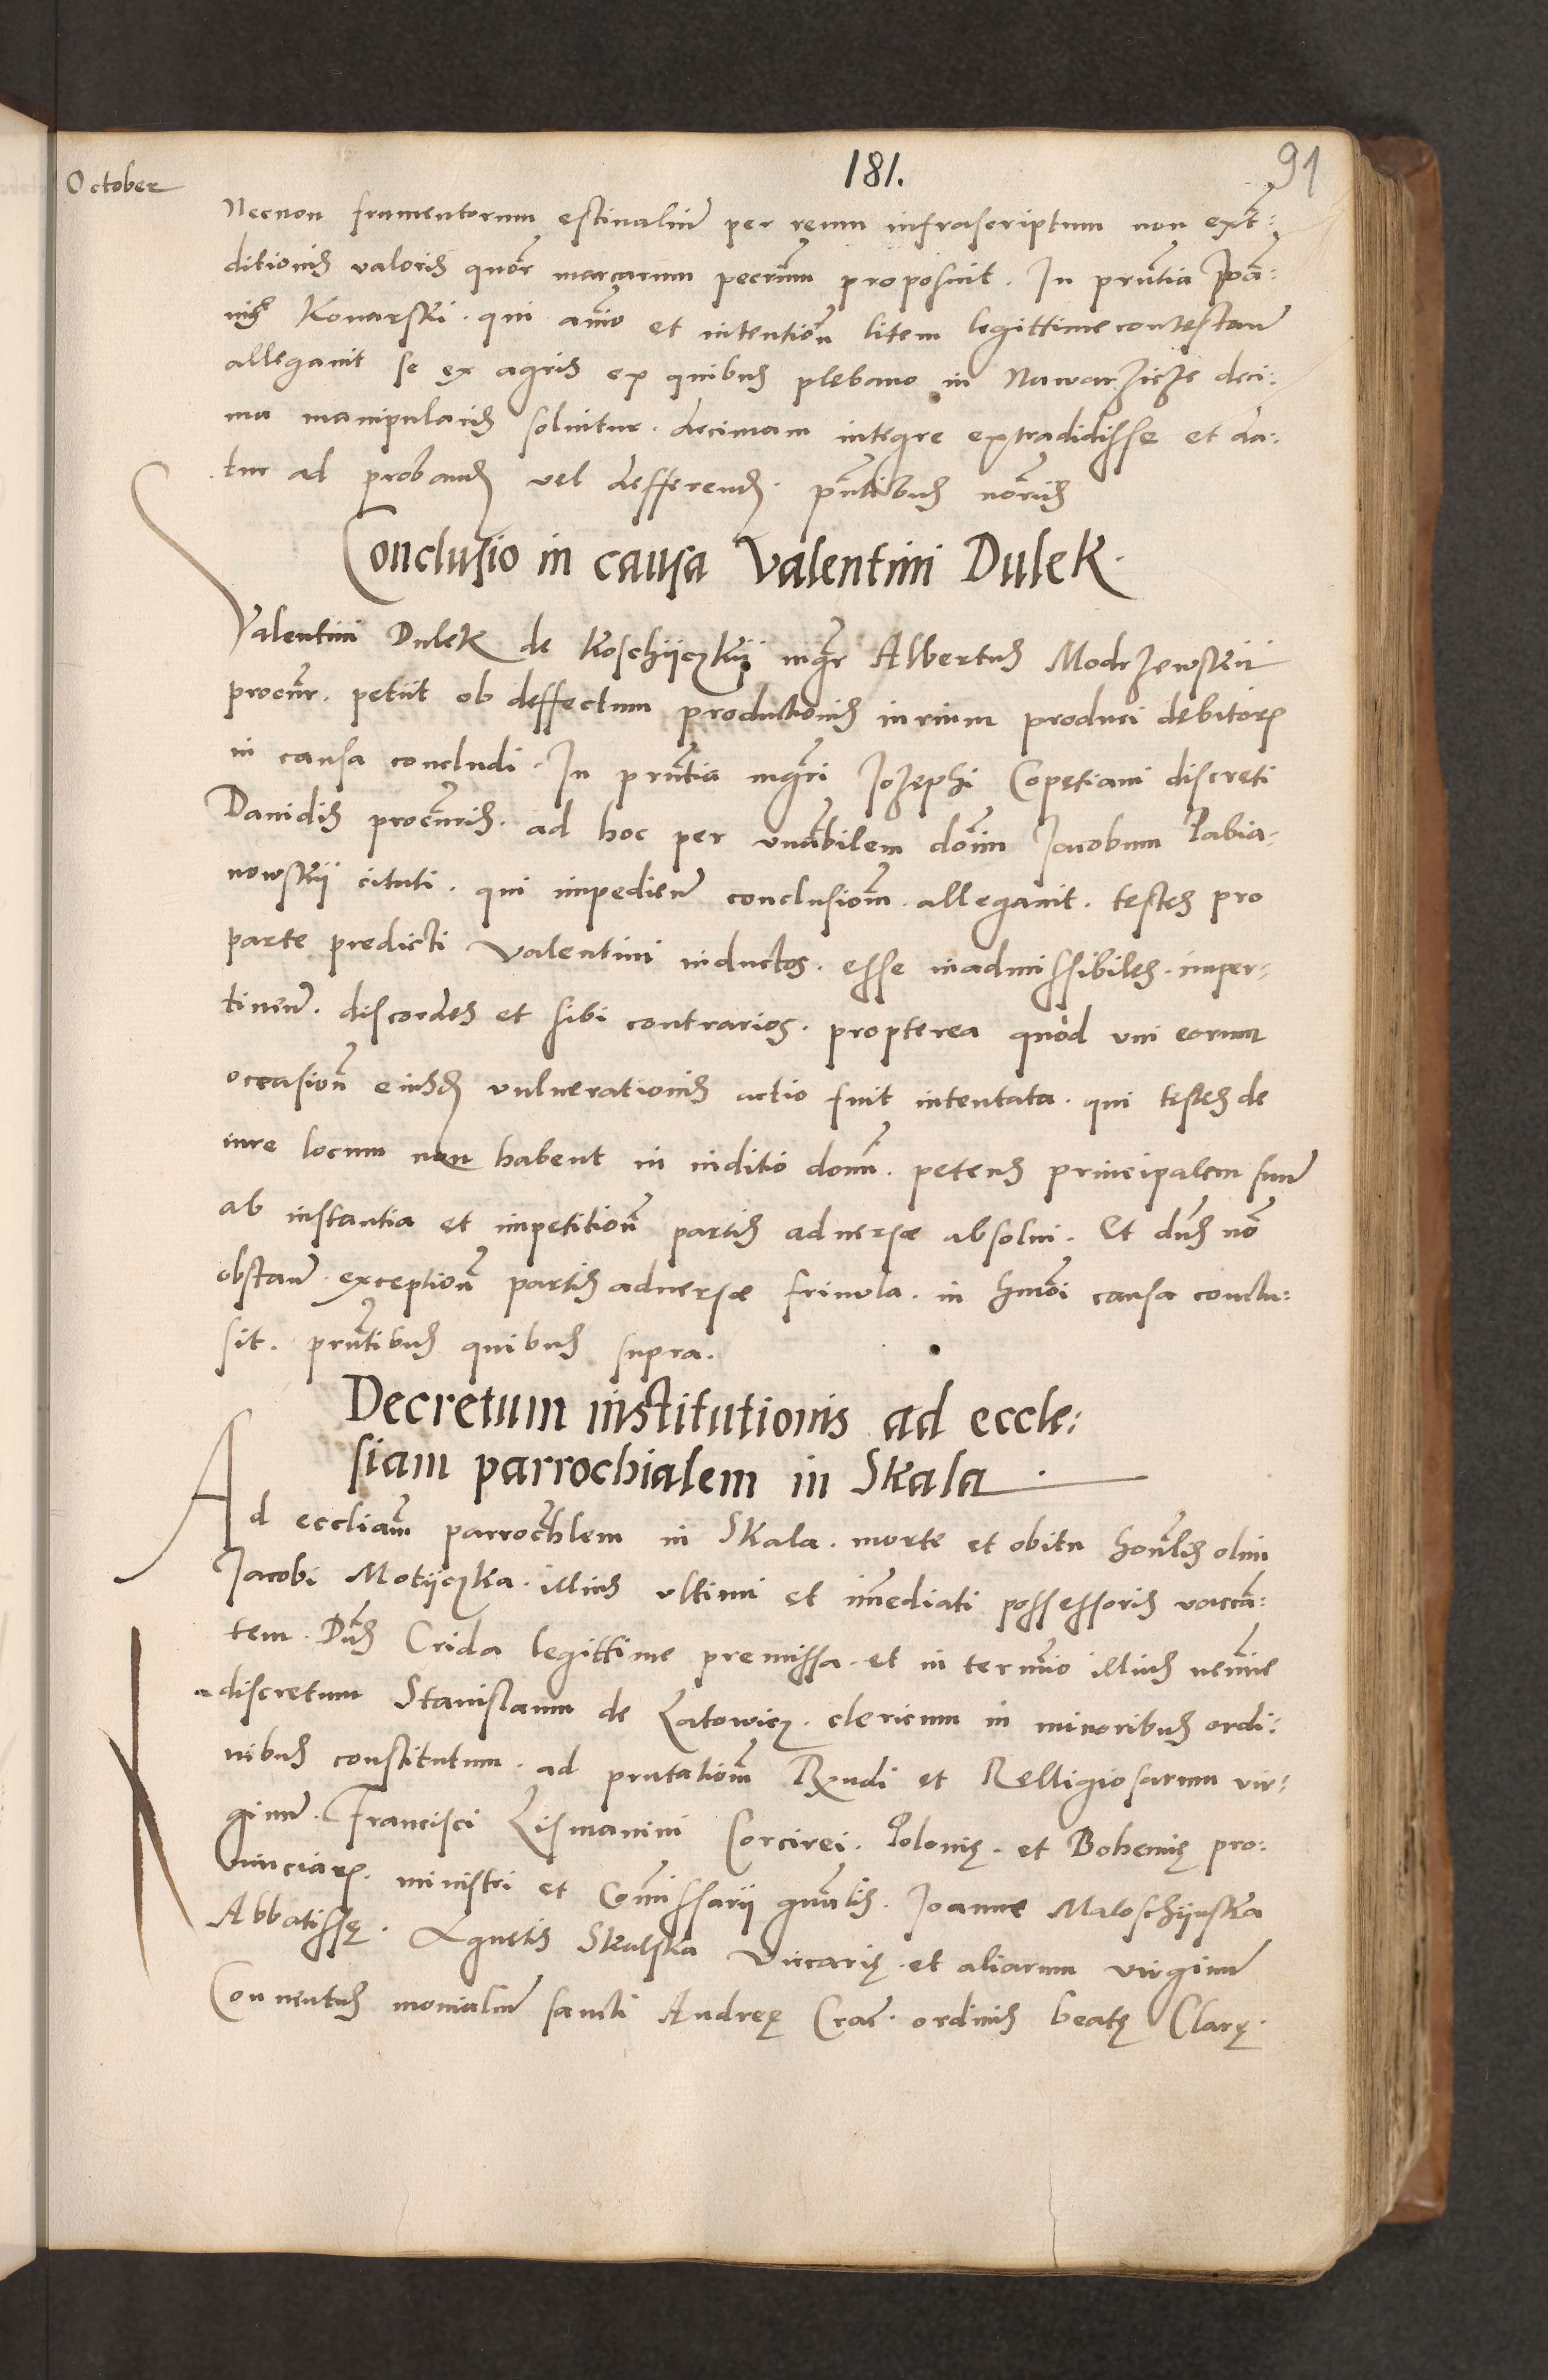 181.
91
October
Necnon frumentorum estivaliu͂ per reum infrascriptum non ext͂:
ditionis valoris quor͂ marcarum pecn͂m proposuit. In prn͂tia Joa͂:
nis Konarski. qui a͂nio et intention͂ litem legittime contestan͂
allegavit se ex agris ex quibus plebano in Nawarzicze deci:
ma manipularis solvitur. decimam integre extradidisse et da:
tur ad proband͂ vel defferend͂. pn͂tibus no͂riis
Conclusio in causa Valentini Dulek.
Valentini Dulek de Koschijczkij mg͂r Albertus Modrzewskii
procur͂. petiit ob deffectum productionis iurium produci debitor͂
in causa concludi. In prn͂tia mg͂ri Jozephi Copetiani discreti
Davidis procur͂is. ad hoc per vn͂abilem do͂in Jacobum Pabia-
nowskij citati. qui impedien͂ conclusion͂m. allegavit. testes pro
parte predicti Valentini inductos. esse inadmissibiles. imper-
tinen͂. discordes et sibi contrarios. propterea quod uni eorum
occasion͂ eiusd͂ vulnerationis actio fuit intentata. qui testes de
iure locum non habent in iuditio dom͂. petens principalem suu͂
ab instantia et impetition͂ partis adversæ absolvi. Et dn͂s no͂
obstan͂. exception͂ partis adversæ frivola. in hmo͂i causa conclu:
sit. prn͂tibus quibus supra.
Decretum institutionis ad eccle:
siam parrochialem in Skala.
Ad eccliam͂ parroch͂lem in Skala. morte et obitu hon͂lis olim
Jacobi Motijczka. illius ultimi et im͂ediati possessoris vacca͂:
tem. Dn͂s Crida legittime premissa. et in termi͂o illius nemi͂e
discretum Stanislaum de Latowicz. clericum in minoribus ordi:
nibus constitutum. ad prn͂tation͂m Rx͂ndi et Relligiosarum vir-
ginu͂. Francisci Lismanini Corcirei. Polonię. et Bohemię pro:
vinciar͂. ministri et Com͂issarii gn͂alis. Joanne Maloschijnska
Abbatissę. Agnetis Skalska Vicarię. et aliarum virginu͂
Conventus monialiu͂ sancti Andreę Crac͂. ordinis beatę Clarę.